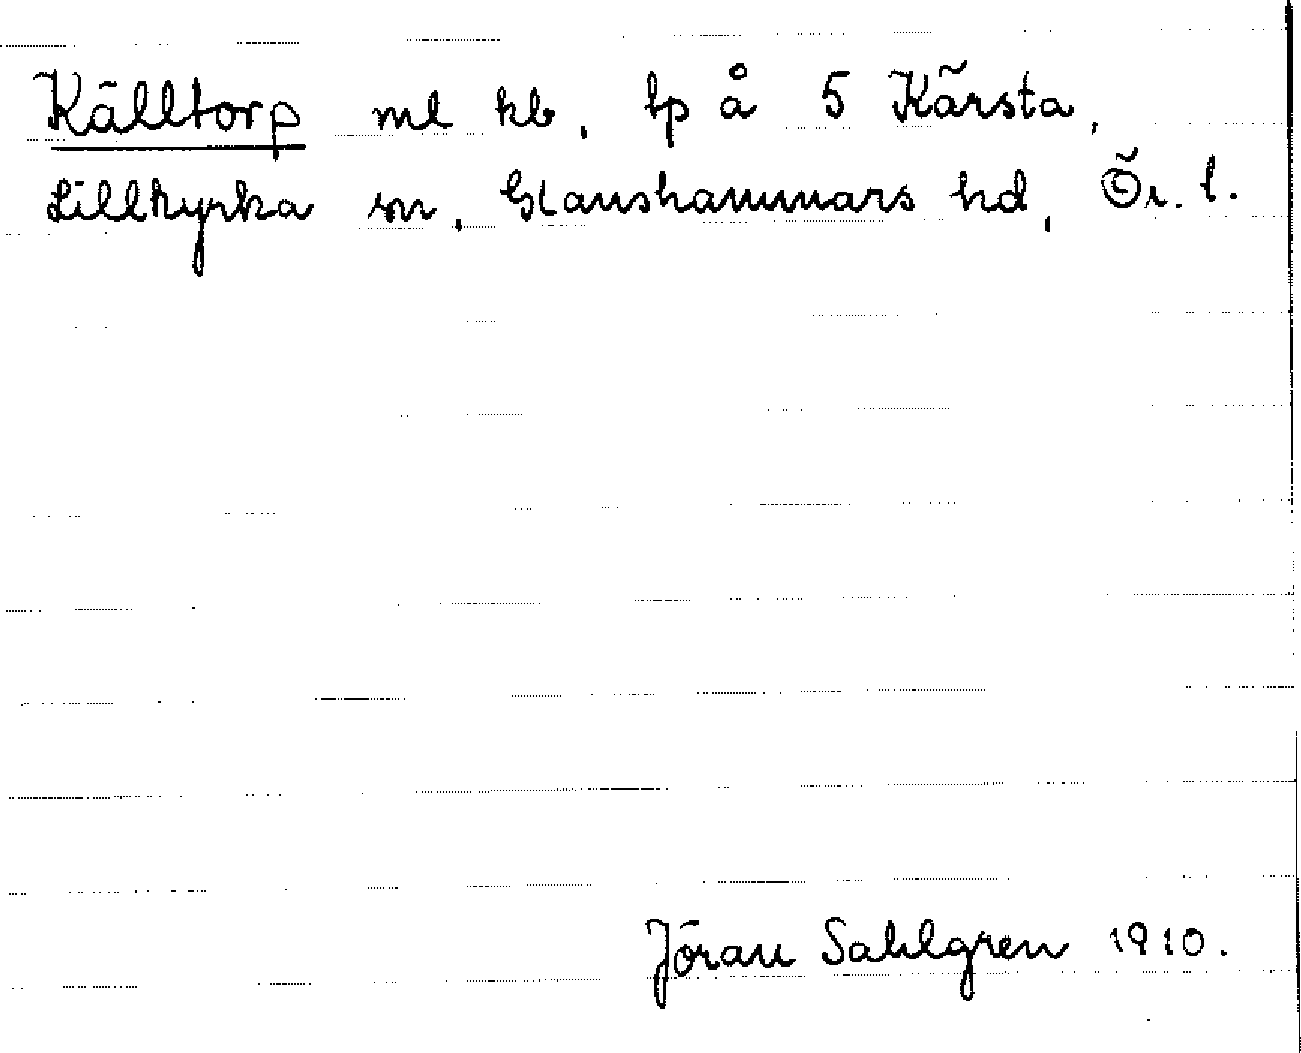 Källtorp ml kb, tp å 5 Kärsta,
Lillkyrka sn, Glanshammars hd, Ör. l.
Jöran Sahlgren 1910.